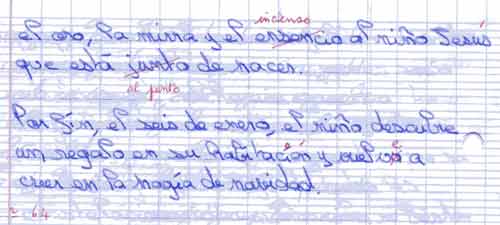 incienso
el oro, la mirra y el ensencio al niño Jesús
que está junto de nacer.
al punto
Por fin, el seis de enero, el niño descubre
un regalo en su habitación y vuelve a
creer en la magía de navidad.